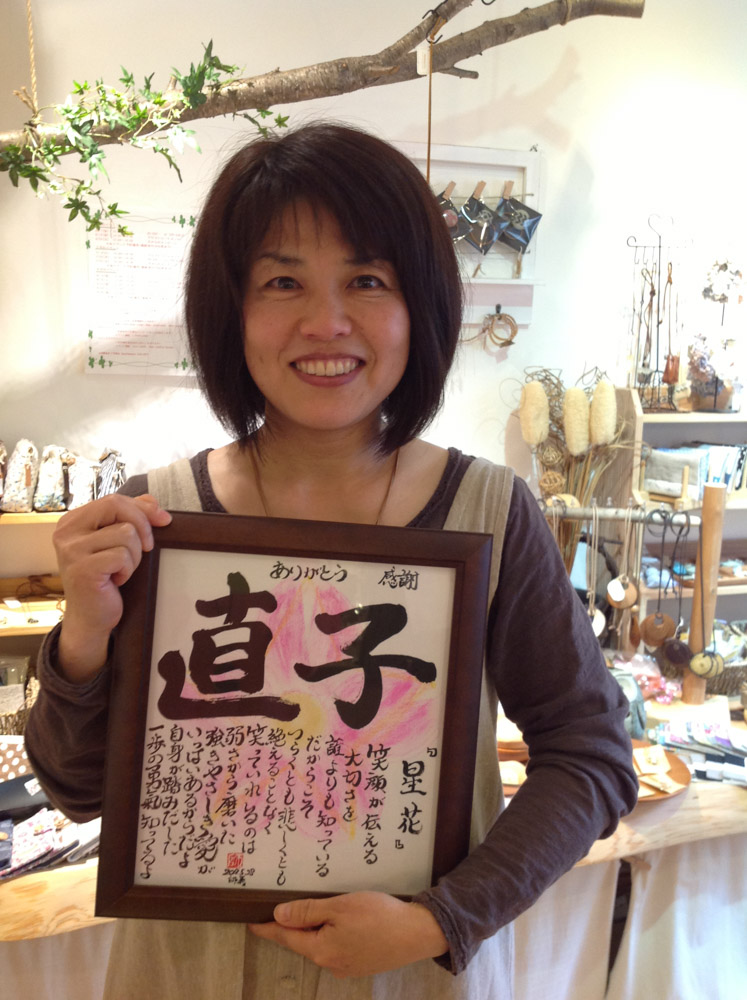 ありがとう 感謝
直子
「星花」
笑顔が伝える
大切さを
誰よりも知っている
だからこそ
つらくとも悲しくとも
絶えることなく
笑っていれるのは
弱さから磨いた
強さやさしさ愛が
いっぱいあるからだよ
自身が踏みだした
一歩の勇氣知ってるよ